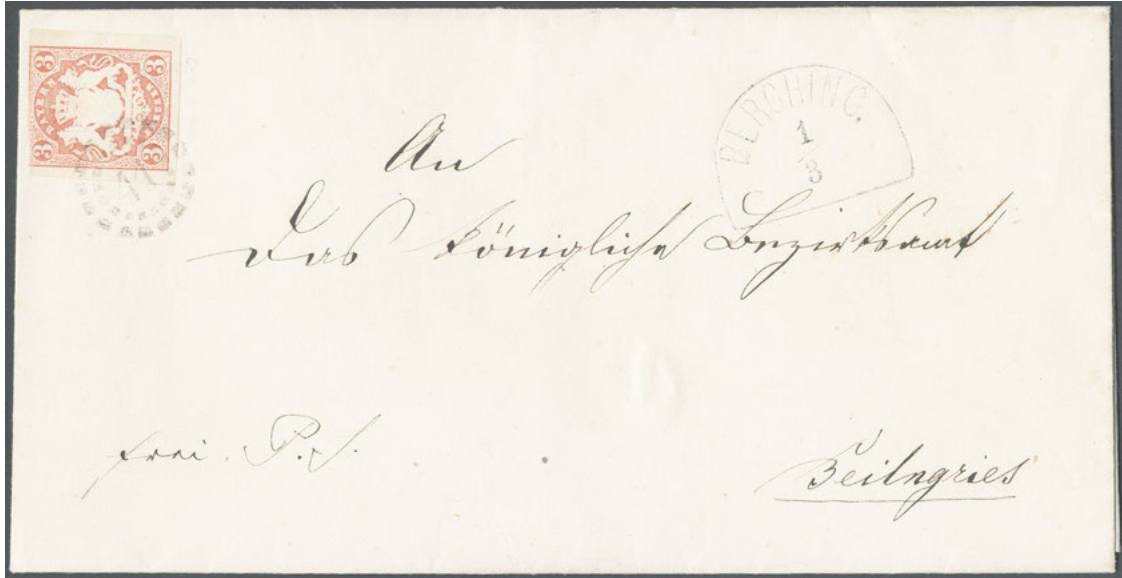 3 3
BAYERN
3 3
BERCHING.
1
8
An
Das Königliche Bezirksamt
frei. P. S.
Beilngries